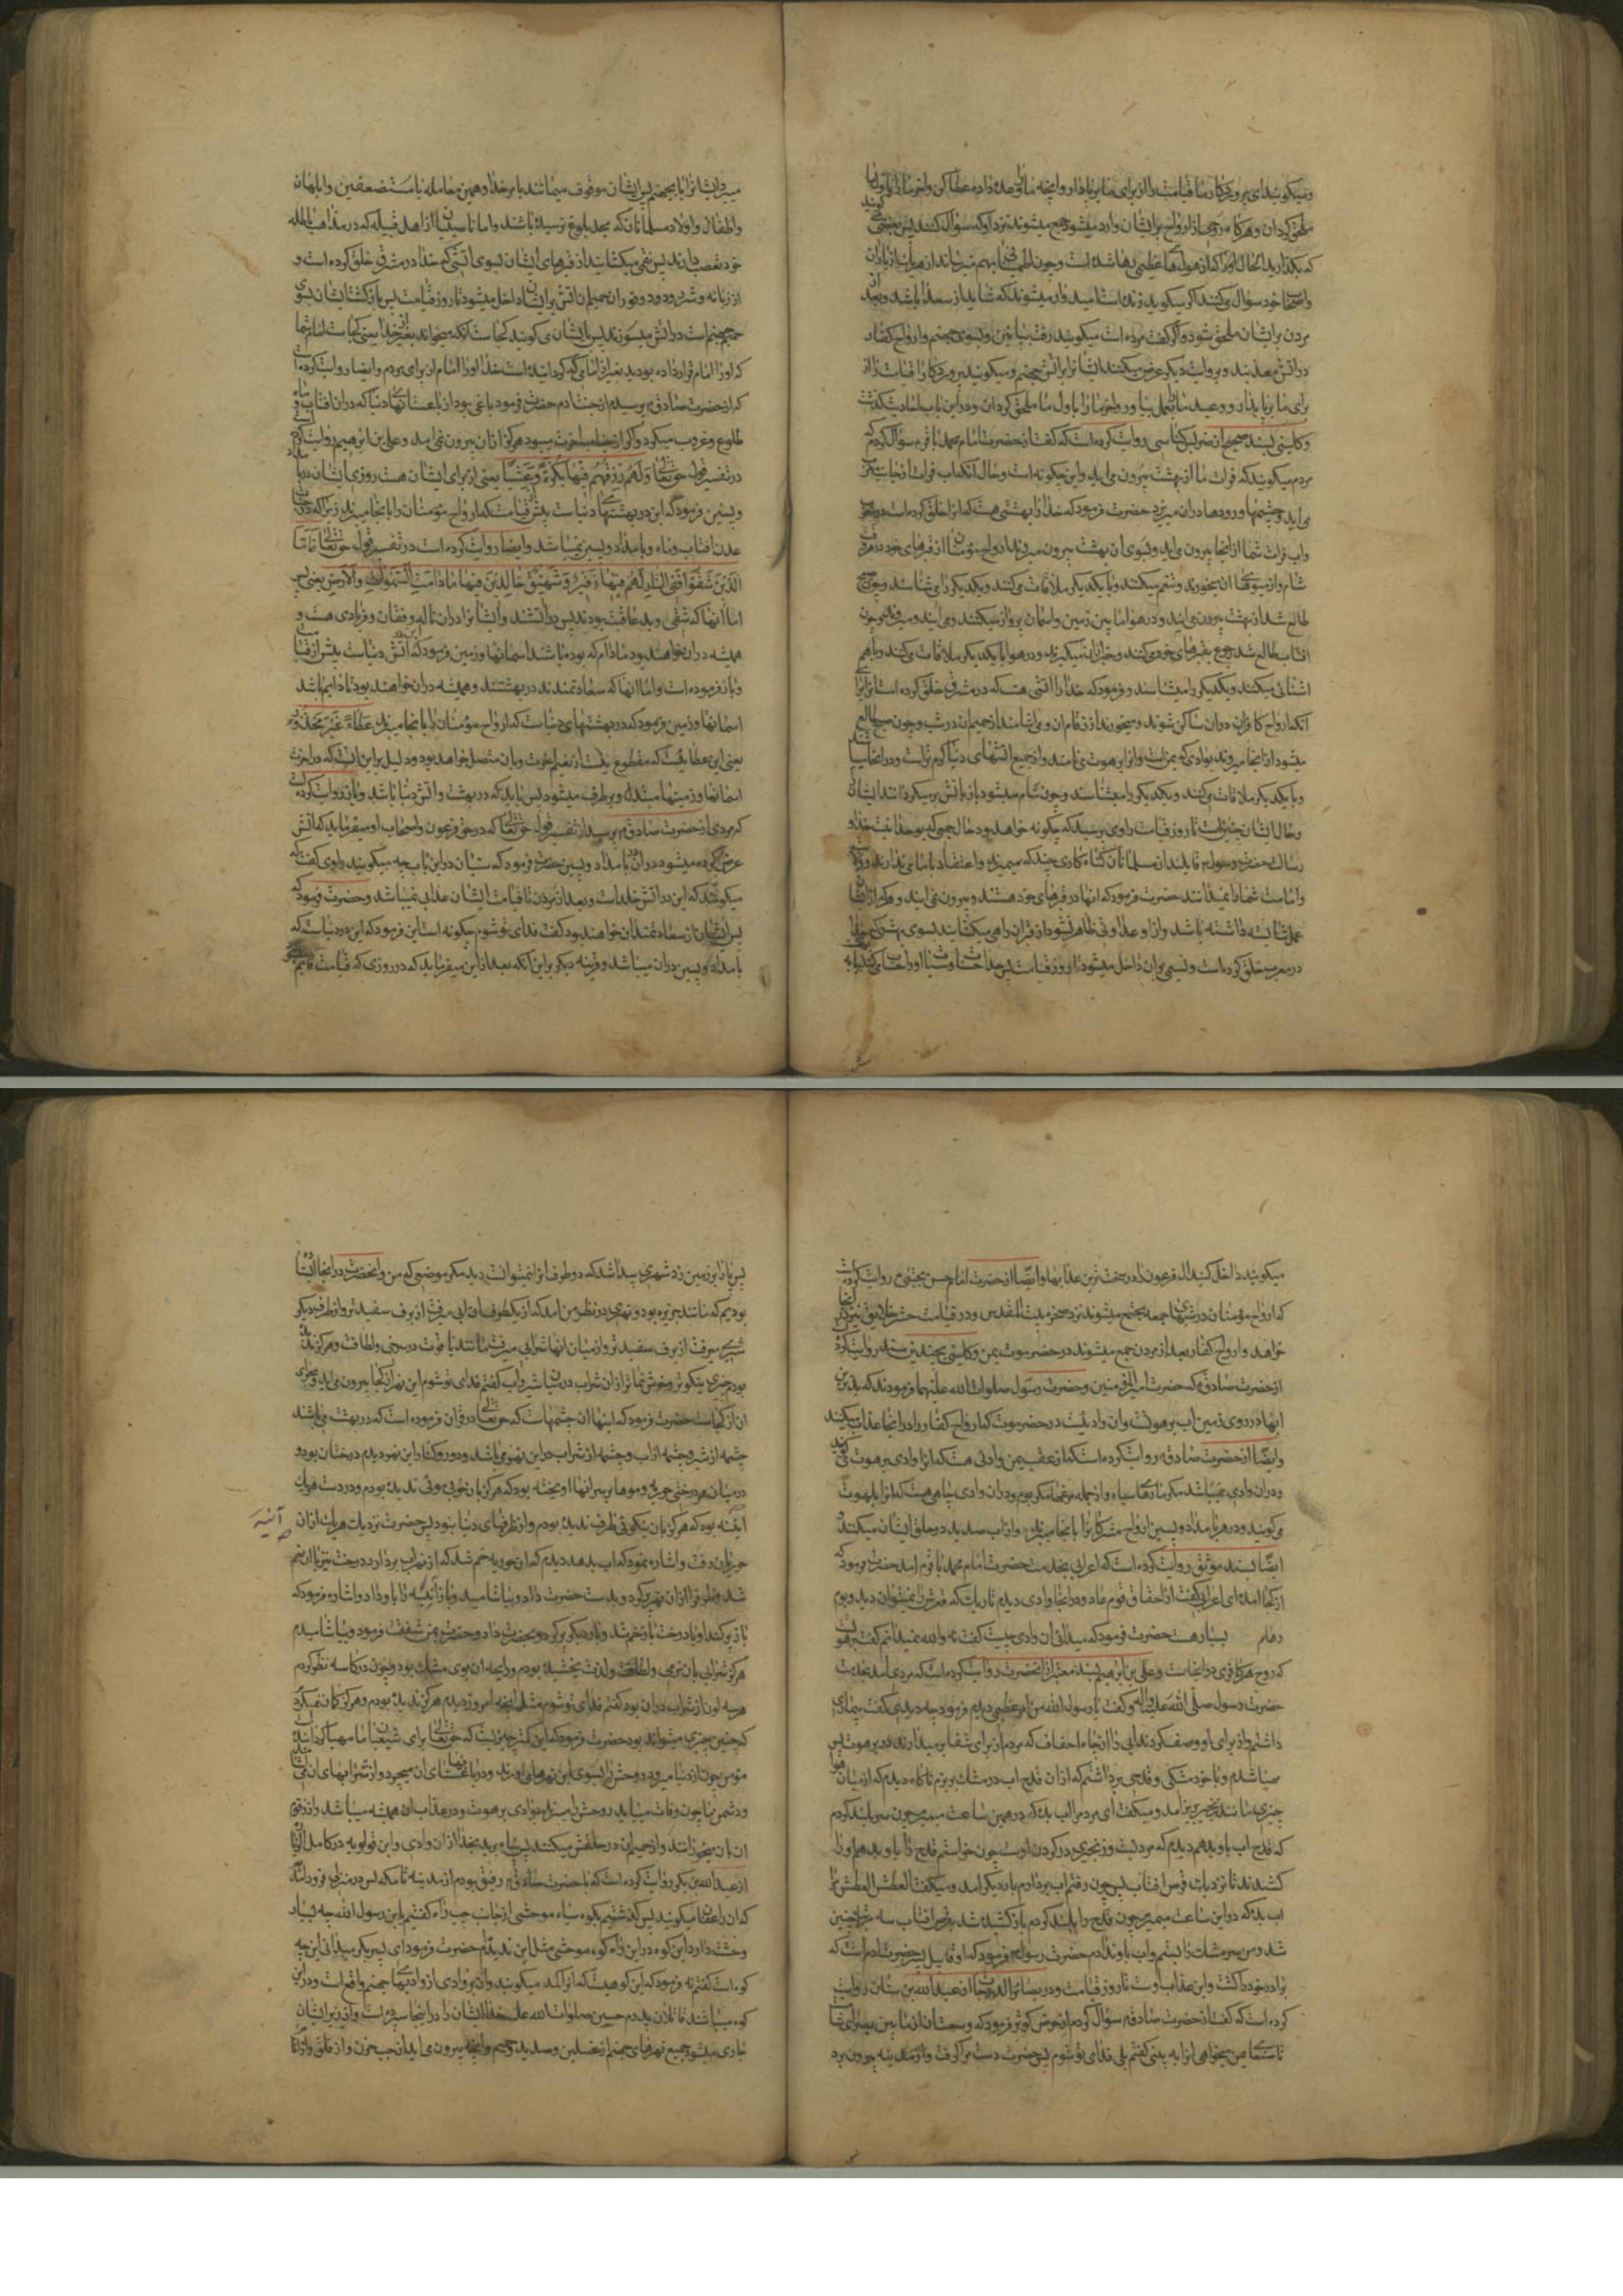 ومیکویند ای پروردکار ما قیامت را از برای ما برپا دار وانچه ما را وعده داده عطا کن واخر ما را باول ما
ملحق کردان وهرکاه روحی از ارواح بر ایشان وارد میشود جمع میشوند نزد او که سؤال کنند پس بعضی میکویند
که بکذارید بحال خود که از هول های عظیمی رها شده است وچون بهم میرساند از
واصحاب خود سؤال میکنند اکر میکوید زنده است امیدوار میشوند که شاید از سعدا باشد وبعد از
مردن بر ایشان ملحق شود واکر کفت مرده است میکویند رفت بپایین وبسوی جهنم وارواح کفار
در اتش معذبند وبروایت دیکر عرض میکنند ایشانرا بر اتش جهنم ومیکویند پروردکارا قیامت را از
برای ما برپا مدار ووعید ما را بعمل میاور واخر ما را باول ما ملحق مکردان ودر این باب احادیث کذشت
وکلینی بسند صحیح از ضریس کناسی روایت کرده است که کفت از حضرت امام محمد باقرع سؤال کردم که
مردم میکویند که فرات ما از بهشت بیرون می اید واین چکونه است وحال آنکه اب فرات از جانب مغرب
می اید وچشمها ورودها دران میریزد حضرت فرمود که خدا را بهشتی هست که انرا خلق کرده است در مغرب
واب فرات شما از انجا بیرون می اید وبسوی ان بهشت بیرون میروند ارواح مؤمنان از قبرهای خود در هر
شام واز میوهای ان میخورند وتنعم میکنند وبا یکدیکر ملاقات می کنند ویکدیکر را می شناسند وچون صبح
طالع شد از بهشت بیرون می ایند ودر هوا ما بین زمین واسمان پرواز میکنند ومی ایند ومیروند وچون
افتاب طالع شد رجوع بقبرهای خود می کنند وخبر از ان میکیرند ودر هوا با یکدیکر ملاقات می کنند وباهم
اشنائی میکنند ویکدیکر را میشناسند وفرمود که خدا را اتشی هست که در مشرق خلق کرده است از برای
آنکه ارواح کافران دران ساکن شوند ومیخورند از زقوم ان ومی اشامند از حمیم ان در شب وچون صبح طالع
میشود از انجا میروند بوادی که در یمن است وانرا برهوت می نامند واز جمیع اتشهای دنیا کرم تر است ودر انجا
وبا یکدیکر ملاقات می کنند ویکدیکر را میشناسند وچون شام میشود باز باتش بر میکردانند ایشانرا
وحال ایشان چنین است تا روز قیامت راوی پرسید که چکونه خواهد بود حال جمعی که بوحدانیت خدا و
رسالت حضرت رسول ص قایلند از مسلمانان کناه کاری چند که میمیرند واعتقاد بامامی ندارند
وامامت شما را نمیدانند حضرت فرمود که انها در قبرهای خود هستند وبیرون نمی ایند وهرکه از ایشان
عمل شایسته داشته باشد واز او عداوتی ظاهر نشود از قبر ان راهی میکشایند بسوی بهشتی که خدا
در مغرب خلق کرده است ونسیمی بران داخل میشود تا روز قیامت پس خدا حسنات وسیئات او را حساب میکند
میبرد ایشانرا یا بجهنم پس ایشان موقوف میباشند بامر خدا وهمین معامله با مستضعفین وابلهان
واطفال واولاد مسلمانان که بحد بلوغ نرسیده باشند واما ناصبیان از اهل قبله که در مذاهب باطله
خود تعصب دارند پس نقبی میکشایند از قبرهای ایشان بسوی اتشی که خدا در مشرق خلق کرده است و
از زبانه وشرر ودود وفوران حمیم ان اتش بر ایشان داخل میشود تا روز قیامت پس بازکشت ایشان بسوی
حمیم جهنم است در اتش میسوزند پس بایشان می کویند کجاست آنکه میخواندید بغیر از خدا یعنی کجاست امام شما
که اورا امام قرار داده بودید بغیر از امامی که کردانیده است خدا اورا امام از برای مردم وایضا روایت کرده است
که از حضرت صادق ع پرسیدم از جنت ادم حضرت فرمود باغی بود از باغستانهای دنیا که دران افتاب وماه
طلوع وغروب میکرد واکر از جنات اخرت میبود هرکز از ان بیرون نمی امد وعلی بن ابرهیم روایت کرده
در تفسیر قول حق تعالی وَلَهُم رِزْقُهُم فیها بُکرَةً وَعَشِیّاً یعنی از برای ایشان هست روزی ایشان در بامداد
وپسین فرمود که این در بهشتهای دنیاست پیش از قیامت که ارواح مؤمنان را بانجا میبرند زیرا که در جنات
عدن افتاب وماه وبامداد وپسین نمیباشد وایضا روایت کرده است در تفسیر قول حق تعالی فَاَمَّا
الَّذینَ شَقُوا فَفِی النَّارِ لَهُم فیها زَفیرٌ وَشَهیقٌ خالِدینَ فیها ما دامَتِ السَّمواتُ وَالاَرضُ یعنی پس
اما انها که شقی وبد عاقبت بودند پس در اتشند وایشانرا دران ناله وفغان وفریادی هست و
همیشه دران خواهند بود مادام که بوده باشد اسمانها وزمین فرمود که این در اتش دنیاست پیش از قیامت
وباز فرموده است واما انها که سعادتمندند در بهشتند وهمیشه دران خواهند بود تا دایم باشد
اسمانها وزمین فرمود که در بهشتهای دنیاست که ارواح مؤمنان را بانجا میبرند عَطاءً غَیرَ مَجذُوذٍ
یعنی این عطائیست که مقطوع نیست از نعیم اخرت وبان متصل خواهد بود ودلیل بر این انست که در اخرت
اسمانها وزمینها مبتدل وبرطرف میشود پس باید که در بهشت واتش دنیا باشد وباز روایت کرده است
که مردی از حضرت صادق ع پرسید از تفسیر قول حق تعالی که در حق فرعون واصحاب او میفرماید که اتش
عرض کرده میشود دران بامداد وپسین حضرت فرمود که سنیان در این باب چه میکویند راوی کفت که
میکویند که این در اتش خلد است وبعد از مردن تا قیامت ایشانرا عذابی نمیباشد وحضرت فرمود که
پس ایشان از سعادتمندان خواهند بود کفت فدای تو شوم چکونه است این فرمود که این در دنیاست که
بامداد وپسین دران میباشد وقرینه دیکر بر این آنکه بعد از این میفرماید که در روزی که قیامت قایم
میکویند داخل کنید ال فرعون را در سخت ترین عذابها وایضا از حضرت امام حسن مجتبی ع روایت کرده است
که ارواح مؤمنان در شبهای جمعه مجتمع میشوند نزد صخره بیت المقدس ودر قیامت حشر خلایق نیز در انجا
خواهد وارواح کفار بعد از مردن جمع میشوند در حضرموت یمن وکلینی بچندین سند روایت کرده
از حضرت صادق ع که حضرت امیر المؤمنین وحضرت رسول صلوات الله علیهما فرمودند که بدترین
ابها در روی زمین اب برهوتست وان وادیست در حضرموت که ارواح کفار را در انجا عذاب میکنند
وایضا از حضرت صادق ع روایت کرده است که از عقب یمن وادئی هست که انرا وادی برهوت می کویند
ودران وادی نمیباشد مکر مارهای سیاه واز جمله مرغها مکر بوم ودران وادی چاهی هست که انرا بلهوت
می کویند ودر هر بامداد وپسین ارواح مشرکانرا بانجا میبرند واز اب صدید در حلق ایشان میکنند و
ایضا بسند موثق روایت کرده است که اعرابی بخدمت حضرت امام محمد باقرع امد حضرت فرمود که
از کجا امده ای اعرابی کفت از احقاف قوم عاد ودر انجا وادی دیدم تاریک که قعرش را نمیتوان دید وبوم
وهام بسیار هست حضرت فرمود که میدانی ان وادی چیست کفت نه والله نمیدانم کفت برهوت است
که روح هر کافری در انجاست وعلی بن ابرهیم بسند معتبر از انحضرت روایت کرده است که مردی امد بخدمت
حضرت رسول صلی الله علیه واله وکفت یا رسول الله من امر عظیمی دیدم فرمود چه دیدی کفت بیماری
داشتم واز برای او وصف کردند ابی را از چاه احقاف که مردم از برای شفا بر میدارند در برهوت پس
مهیا شدم وبا خود مشکی وقدحی برداشتم که از ان قدح اب در مشک بریزم ناکاه دیدم که از میان هوا
چیزی مانند زنجیر بزیر امد ومیکفت ای مرد مرا اب بده که در همین ساعت میمیرم چون سر بلند کردم
که قدح اب باو بدهم دیدم که مردیست وزنجیری در کردن اوست چون خواستم قدح را باو بدهم او را
کشیدند تا نزدیک قرص افتاب پس چون رفتم اب بردارم بار دیکر امد ومیکفت العطش العطش مرا
اب بده که در این ساعت میمیرم چون قدح را بلند کردم باز کشیده شد بقرص افتاب سه مرتبه چنین
شد ومن سر مشک را بستم واب باو ندادم حضرت رسول ص فرمود که او قابیل پسر حضرت ادم است که
برادر خود را کشت واین عذاب اوست تا روز قیامت ودر بصائر الدرجات از عبد الله بن سنان روایت
کرده است که کفت از حضرت صادق ع سؤال کردم از حوض کوثر فرمود که وسعت ان از ما بین بصرای شام
تا صنعای یمن میخواهی انرا به بینی کفتم بلی فدای تو شوم پس حضرت دست مرا کرفت واز مدینه بیرون برد
پس پا را بر زمین زد نهری پیدا شد که دو طرف انرا نمیتوانست دید مکر موضعی که من وانحضرت در انجا ایستاده
بودیم که مانند جزیره بود ونهری در نظر من امد که از یکطرف ان ابی میرفت از برف سفیدتر واز طرف دیکر
شیری میرفت از برف سفیدتر واز میان انها شرابی میرفت مانند یاقوت در سرخی ولطافت وهرکز ندیده
بودم چیزی نیکوتر وخوش نماتر از ان شراب در میان شیر واب کفتم فدای تو شوم این نهر از کجا بیرون می اید ومجرای
ان از کجاست حضرت فرمود که اینها ان چشمهاست که حق تعالی در قران فرموده است که در بهشت میباشد
چشمه از شیر وچشمه از اب وچشمه از شراب در این نهر میباشد ودر دو کنار این نهر دیدم درختان بود و
در میان هر درختی حوریه وموها بر سر انها اویخته بود که هرکز بان خوبی موئی ندیده بودم ودر دست هریک
آنیه بود که هرکز بان نیکوئی ظرف ندیده بودم واز ظرفهای دنیا نبود پس حضرت نزدیک هریک از ان
آنیه
حوریان رفت واشاره نمود که اب بدهد دیدم که ان حوریه خم شد که از نهر اب بردارد درخت نیز با ان خم
شد وظرف را از ان نهر پر کرد وبدست حضرت داد وبیاشامید وباز آنیه را باو داد واشاره فرمود که
باز پر کند او با درخت باز خم شد وبار دیکر پر کرد وبحضرت داد وحضرت بمن شفقت فرمود وبیاشامیدم
هرکز شرابی بان نرمی ولطافت ولذت نچشیده بودم ورایحه ان بوی مشک بود وچون در کاسه نظر کردم
هر سه لون از شراب دران بود کفتم فدای تو شوم مثل انچه امروز دیدم هرکز ندیده بودم وهرکز کمان نمیکردم
که چنین چیزی میتواند بود حضرت فرمود که این کمتر چیزیست که حق تعالی برای شیعیان ما مهیا کردانیده است
مؤمن چون از دنیا میرود روحش را بسوی این نهر می اورند ودر باغستانهای ان میچرد واز شرابهای ان می اشامد
ودشمن ما چون وفات مییابد روحش را میبرند بوادی برهوت ودر عذاب ان همیشه میباشد واز زقوم
ان باو میخورانند واز حمیم ان در حلقش میکنند پس پناه برید بخدا از ان وادی وابن قولویه در کامل الزیاره
از عبد الله بن بکر روایت کرده است که با حضرت صادق ع رفیق بودم از مدینه تا مکه پس در منزلی فرود امدیم
که ان را عسفان میکویند پس کذشتیم بکوه سیاه موحشی از جانب چپ راه کفتم یابن رسول الله چه بسیار
وحشت دارد این کوه در این راه کوه موحشی مثل این ندیدم حضرت فرمود ای پسر بکر میدانی این چه
کوه است کفتم نه فرمود که این کوهیست که انرا کمد میکویند وان بر وادئی از وادیهای جهنم واقع است ودر این
کوه میباشند قاتلان پدرم حسین صلوات الله علیه خدا ایشان را در انجا سپرده است واز زیر ایشان
جاری میشود جمیع نهرهای جهنم از غسلین وصدید وحمیم وانچه بیرون می اید از جب حزن واز فلق واز اثام